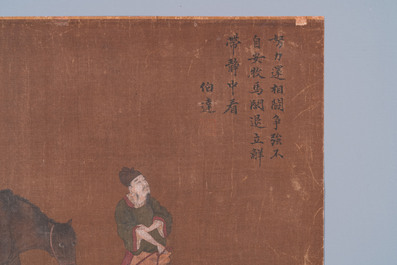 努力還相關爭強不
自安牧馬閑退立鮮
帶靜中看
伯達